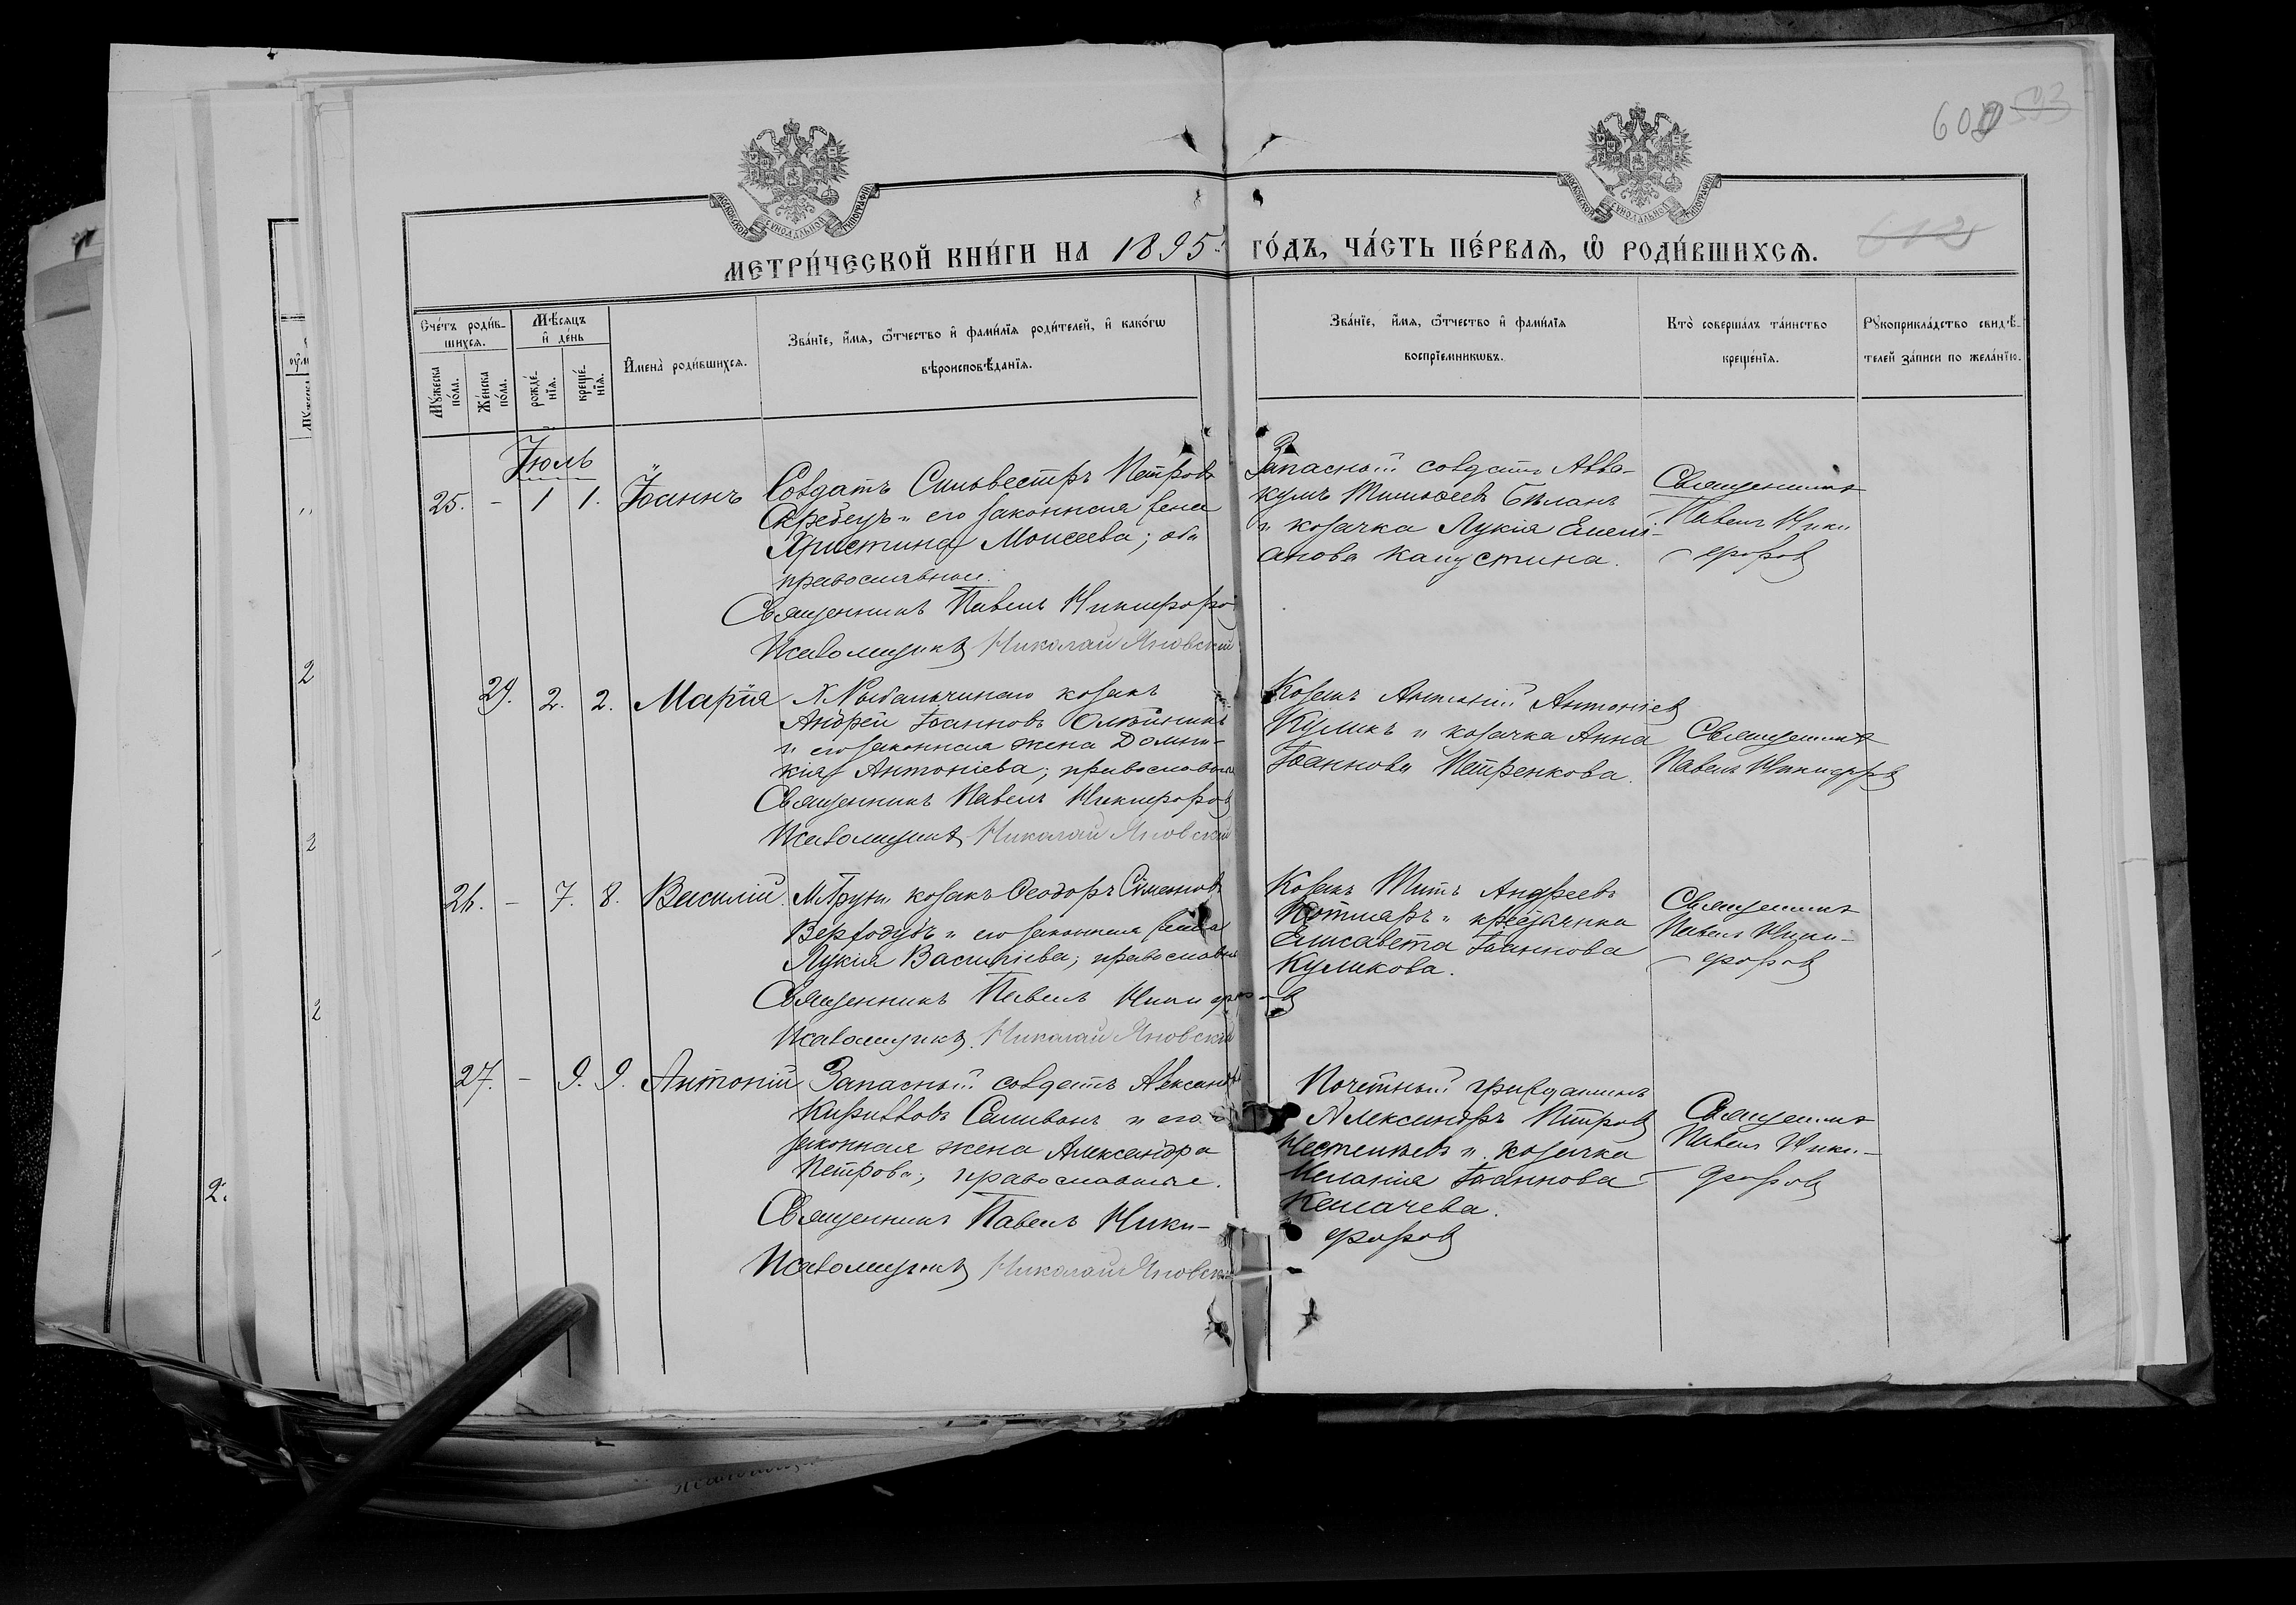 600 593
612
МОСКОВСКОЙ СѴНОДАЛЬНОЙ ТИПОГРАФІИ
МОСКОВСКОЙ СѴНОДАЛЬНОЙ ТИПОГРАФІИ
МЕТРИ́ЧЕСКОЙ КНИ́ГИ НА 1895 ГО́ДЪ, ЧА́СТЬ ПЕ́РВАѦ, Ѡ҆ РОДИ́ВШИХСѦ.
Сче́тъ роди́в-
шихсѧ.
Мꙋ́жеска по́ла.
Же́нска по́ла.
Мѣ́сѧцъ
и҆ де́нь
рожде́-
нїѧ.
креще́-
нїѧ.
И҆мена̀ роди́вшихсѧ.
Зва́нїе, и҆́мѧ, ѻ҆́тчество и҆ фами́лїѧ роди́телей, и҆ како́гѡ
вѣроисповѣ́данїѧ.
Зва́нїе, и҆́мѧ, ѻ҆́тчество и҆ фами́лїѧ
воспрїе́мникѡвъ.
Кто̀ соверша́лъ та́инство
креще́нїѧ.
Рꙋкоприкла́дство свидѣ́-
телей за́писи по жела́нїю.
Іюль
25. - 1 1. Іоаннъ
Солдатъ Сильвестръ Петровъ
Скребецъ и его законная жена
Христина Моисеева; оба
православные.
Священникъ Павелъ Никифоров
Псаломщикъ Николай Яновскій
Запасный солдатъ Авва-
кумъ Тимофеевъ Бѣланъ
и козачка Лукія Емели-
анова Капустина.
Священникъ
Павелъ Ники
форовъ
29. 2. 2. Марія
козакъ
Андрей Іоанновъ Олѣйникъ
и его законная жена Домни-
кія Антоніева; православные
Священникъ Павелъ Никифоровъ
Псаломщикъ Николай Яновскій
Козакъ Антоній Антоніевъ
Куликъ и козачка Анна
Іоаннова Петренкова.
Священникъ
Павелъ Никифоровъ
26. - 7. 8. Василій
козакъ Ѳеодоръ Сѷмеоновъ
Верходубъ и его законная жена
Лукія Васильева; православные
Священникъ Павелъ Никифоровъ
Псаломщикъ Николай Яновскій
Козакъ Титъ Андреевъ
Котляръ и
Елисавета Іоаннова
Куликова.
Священникъ
Павелъ Ники-
форовъ
27. - 9. 9. Антоній
Запасный солдатъ Александръ
Кирилловъ Селиванъ и его
законная жена Александра
Петрова; православные.
Священникъ Павелъ Ники-
форовъ
Псаломщикъ Николай Яновскій
Почетный гражданинъ
Александръ Петровъ
и козачка
Меланія Іоаннова
Священникъ
Павелъ Ники-
форовъ